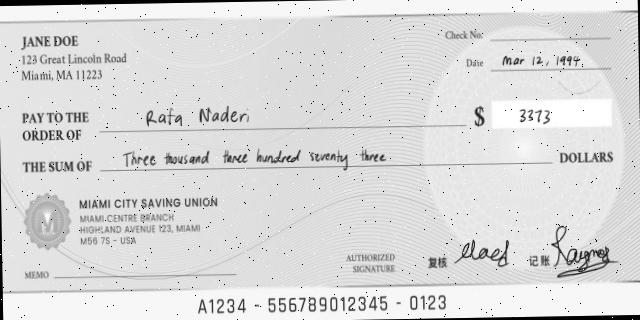 JANE DOE
Check No:
123 Great Lincoln Road
Miami, MA 11223
Date Mar 12, 1994
PAY TO THE
ORDER OF Rafa Naderi $ 3373
THE SUM OF Three thousand three hundred seventy three DOLLARS
MIAMI CITY SAVING UNION
MIAMI-CENTRE BRANCH
HIGHLAND AVENUE 123, MIAMI
M56 7S - USA
AUTHORIZED
SIGNATURE
复核 记账
MEMO
A1234 - 556789012345 - 0123